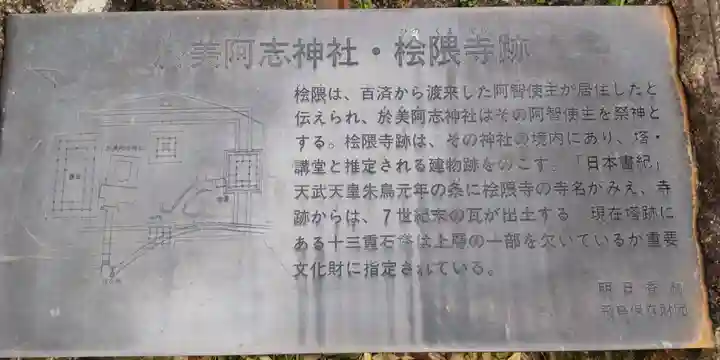 於美阿志神社・桧隈寺跡
桧隈は、百済から渡来した阿智使主が居住したと
伝えられ、於美阿志神社はその阿智使主を祭神と
する。桧隈寺跡は、その神社の境内にあり、塔・
講堂と推定される建物跡をのこす。「日本書紀」
天武天皇朱鳥元年の条に桧隈寺の寺名がみえ、寺
跡からは、7世紀末の瓦が出土する 現在塔跡に
ある十三重石塔は上層の一部を欠いているが重要
文化財に指定されている。
明日香村
飛鳥保存財団